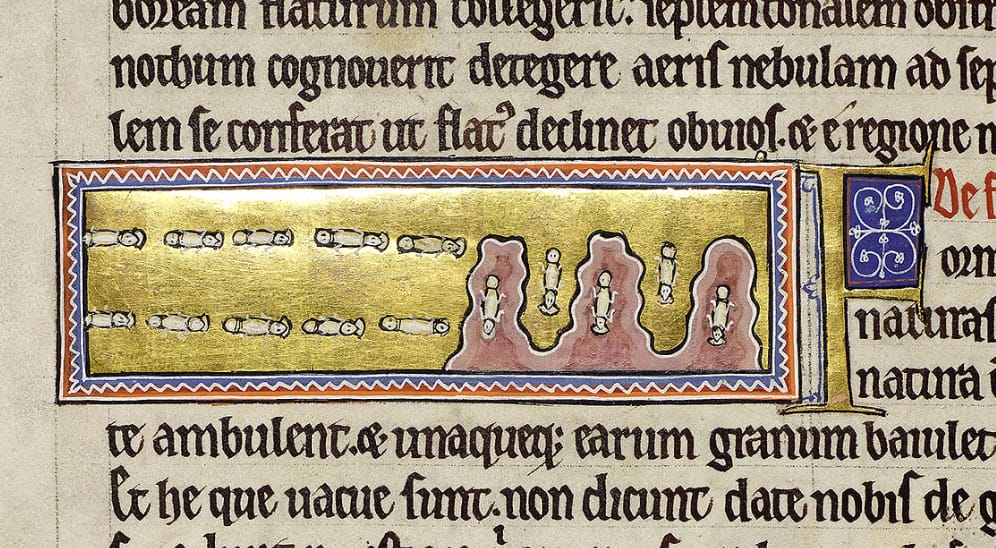 boream flaturum collegerit. septemtonalem
nothum cognouerit detegere aeris nebulam ad sep
lem se conferat ut flatꝰ declinet obuios. & e regione n
De f
F orm
naturas
natura
te ambulent. & unaqueq; earum granum baiulet
Et he que uacue sunt. non dicunt date nobis de g